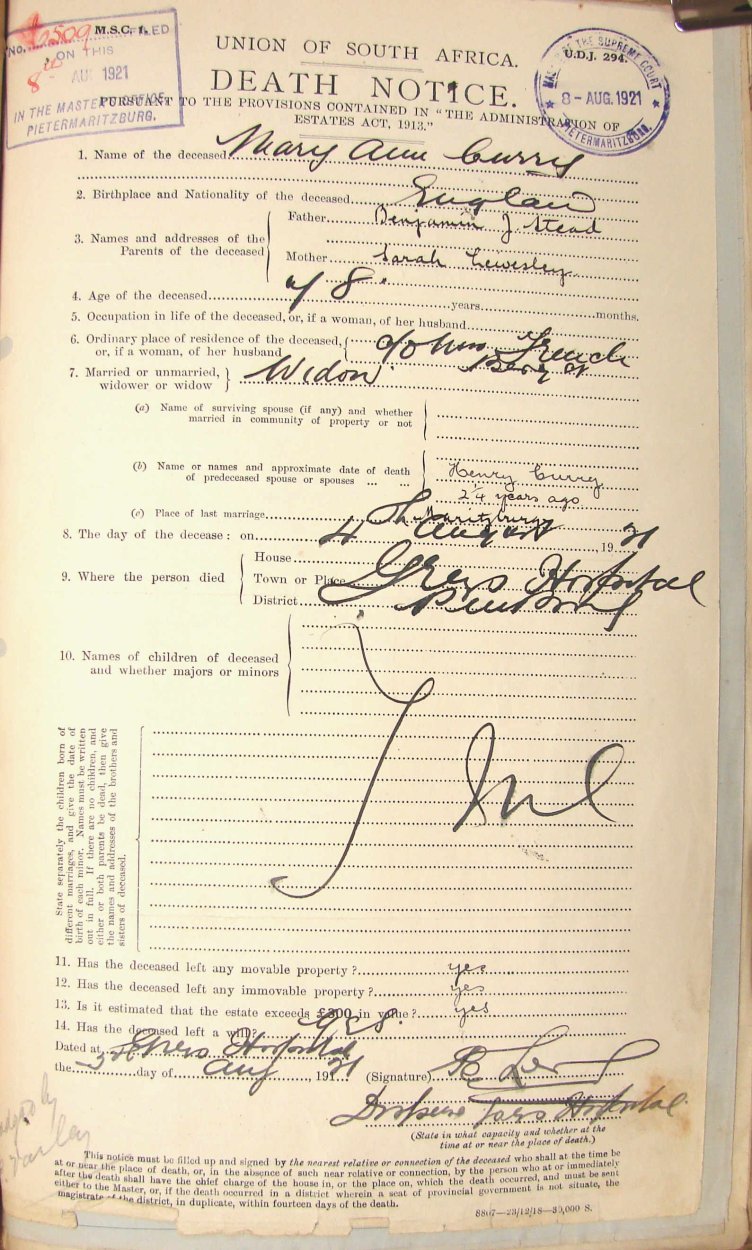 No. 6509 M.S.C. 1. FILED
ON THIS
8 - AUG 1921
IN THE MASTER'S OFFICE,
PIETERMARITZBURG.
U.D.J. 294.
MASTER OF THE SUPREME COURT
8-AUG.1921
PIETERMARITZBURG.
UNION OF SOUTH AFRICA.
DEATH NOTICE.
PURSUANT TO THE PROVISIONS CONTAINED IN "THE ADMINISTRATION OF
ESTATES ACT, 1913."
1. Name of the deceased Mary Ann Curry
2. Birthplace and Nationality of the deceased England
3. Names and addresses of the Parents of the deceased
Father Benjamin J. Stead
Mother Sarah Lewesley
4. Age of the deceased 78. years months.
5. Occupation in life of the deceased, or, if a woman, of her husband
6. Ordinary place of residence of the deceased,
or, if a woman, of her husband John French
7. Married or unmarried,
widower or widow Widow
(a) Name of surviving spouse (if any) and whether
married in community of property or not
(b) Name or names and approximate date of death
of predeceased spouse or spouses ... ...
Henry Curry
24 years ago
(c) Place of last marriage Maritzburg
8. The day of the decease: on 4 August, 19 21
9. Where the person died
House
Town or Place Greys Hospital
District
10. Names of children of deceased
and whether majors or minors
State separately the children born of
different marriages, and give the date of
birth of each minor. Names must be written
out in full. If there are no children, and
either or both parents be dead, then give
the names and addresses of the brothers and
sisters of deceased.
Nil
11. Has the deceased left any movable property? yes
12. Has the deceased left any immovable property? yes
13. Is it estimated that the estate exceeds £300 in value? yes
14. Has the deceased left a will? yes.
Dated at Greys Hospital
the 5th day of Aug, 191 21 (Signature)
Dispenser Greys Hospital
(State in what capacity and whether at the
time at or near the place of death.)
This notice must be filled up and signed by the nearest relative or connection of the deceased who shall at the time be
at or near the place of death, or, in the absence of such near relative or connection, by the person who at or immediately
after the death shall have the chief charge of the house in, or the place on, which the death occurred, and must be sent
either to the Master, or, if the death occurred in a district wherein a seat of provincial government is not situate, the
magistrate of the district, in duplicate, within fourteen days of the death.
8867—23/12/18—30,000 S.